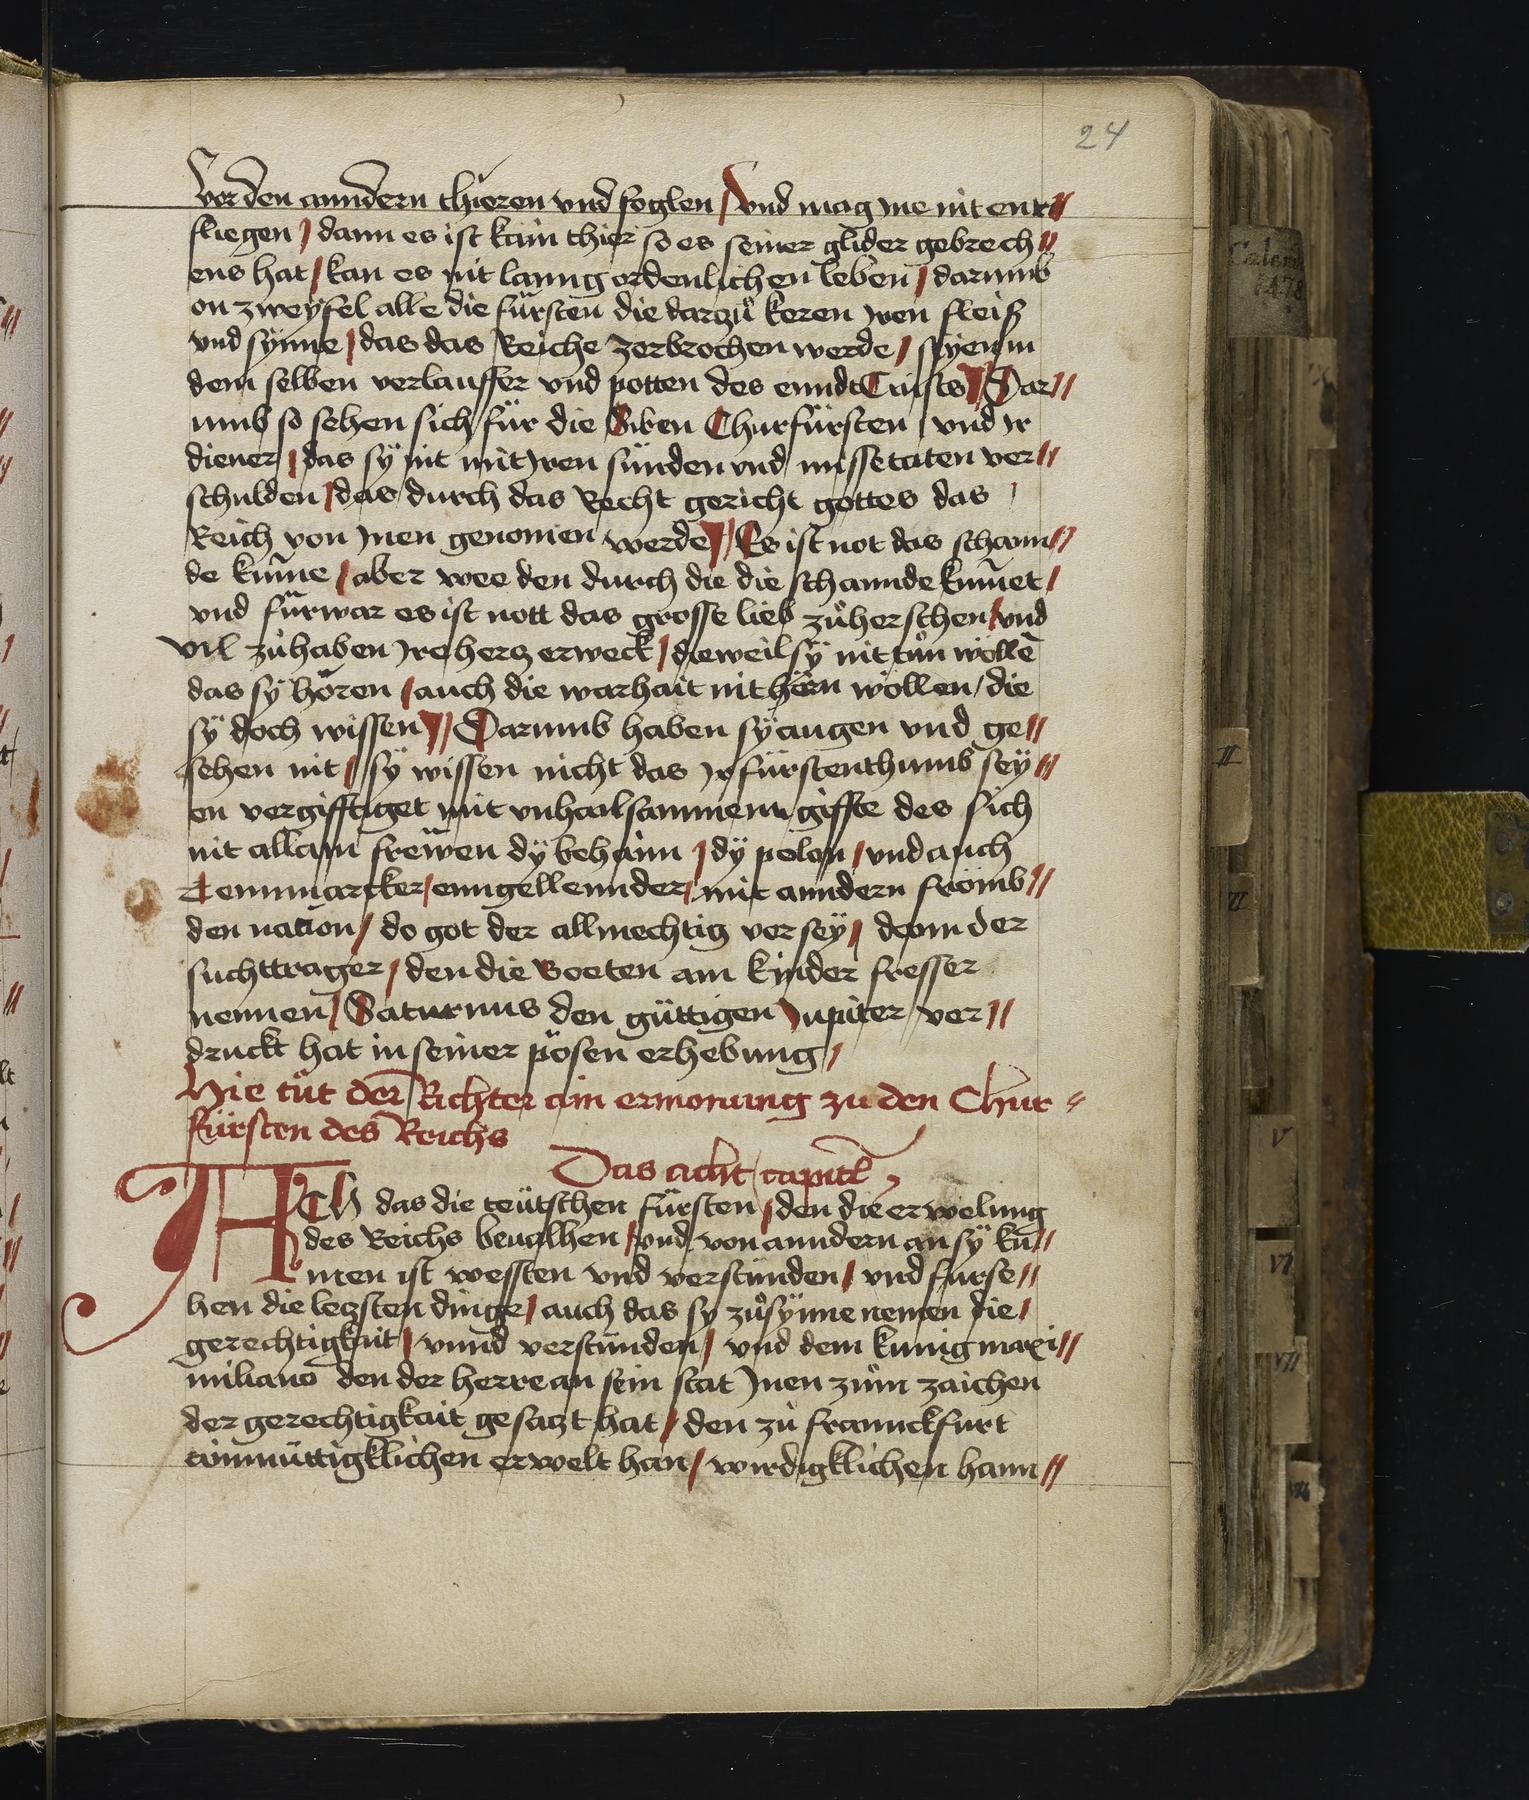 24
vor den anndern thieren vnd foglen / vnd mag jne nit entt//
fliegen / dann es ist kain thier so es seiner glider gebrech//
ens hat / kan es nit lanng ordenlichen leben / darumb
on zweyfel alle die fürsten die darzů keren jren fleiß
vnd synne / das das Reiche zerbrochen werde / seyen in
dem selben verlauffer vnd potten des enndt Crists // Dar//
umb so sehen sich für die Siben Churfürsten / vnd jr
diener / das sÿ nit mit jren sünden vnd missetaten ver//
schulden / das durch das Recht gericht gottes das /
Reich von jnen genomen werde // Es ist not das schann//
de kum̄e / aber wee den durch die die schannde kum̄et /
vnd fürwar es ist nott das grosse lieb zůherschen / vnd
vil zůhaben jre hertz erweck / dieweil sÿ nit tůn wöllē
das sÿ hören / auch die warhait nit hörn wöllen / die
sÿ doch wissen // Darumb haben sÿ augen vnd ge//
sehen nit / sÿ wissen nicht das jr fürstenthumb seÿ//
en vergifftiget mit vnhailsammem giffte des sich
nit allain frewen dÿ behaim / dÿ polen / vnd auch
Tennmarcker / enngellennder / mit anndern frömb//
den nation / do got der allmechtig vor seÿ / dann der
suchttrager / den die Poeten ain kinder fresser
nennen / Saturnus den güttigen Jupiter ver//
druckt hat in seiner pösen erhebung /
Hie tůt der Richter ain ermonung zu den Chur//
fürsten des Reichs
Das acht capitel
ACh das die teütschen fürsten / den die erwelung
des Reichs beualhen / vnd von anndern an sÿ kū//
men ist wessten vnd verstünden / vnd fürse//
hen die letzsten dinge / auch das sy zůsÿnne nemen die /
gerechtigkait / vnnd verstünden / vnd dem kunig maxi//
miliano den der herre an sein stat jnen zům zaichen
der gerechtigkait gesatzt hat / den zů franckfurt
ainmüttigklichen erwelt han / wirdigklichen hann//
Calend
1478
II
V
VI
VII